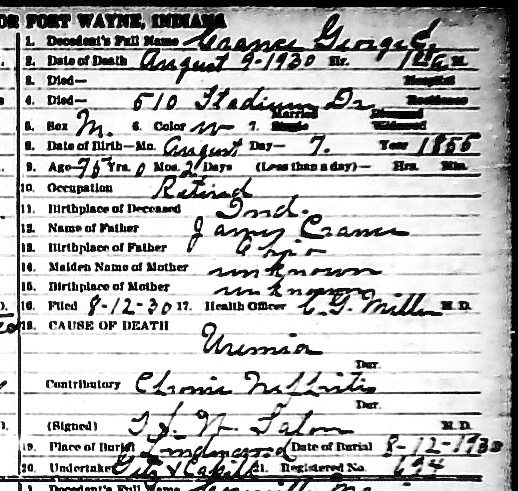 OR FORT WAYNE, INDIANA
1. Decedent's Full Name Crance George E.
2. Date of Death August 9-1930 Hr. M.
3. Died— Hospital
4. Died— 510 Stadium Dr Residence
5. Sex M. 6. Color w 7. Married Single Widowed
8. Date of Birth—Mo. August Day— 7. Year 1855
9. Age 75 Yrs. 0 Mos. 2 Days (Less than a day)— Hrs. Min.
10. Occupation Retired
11. Birthplace of Deceased Ind.
12. Name of Father James Crance
13. Birthplace of Father Ohio
14. Maiden Name of Mother unknown
15. Birthplace of Mother unknown
16. Filed 8-12-30 17. Health Officer C. G. Miller M.D.
18. CAUSE OF DEATH
Uremia
Dur.
Contributory Chronic Nephritis
Dur.
(Signed) M.D.
19. Place of Burial Lindenwood Date of Burial 8-12-1930
20. Undertaker 21. Registered No. 694
1. Decedent's Full Name